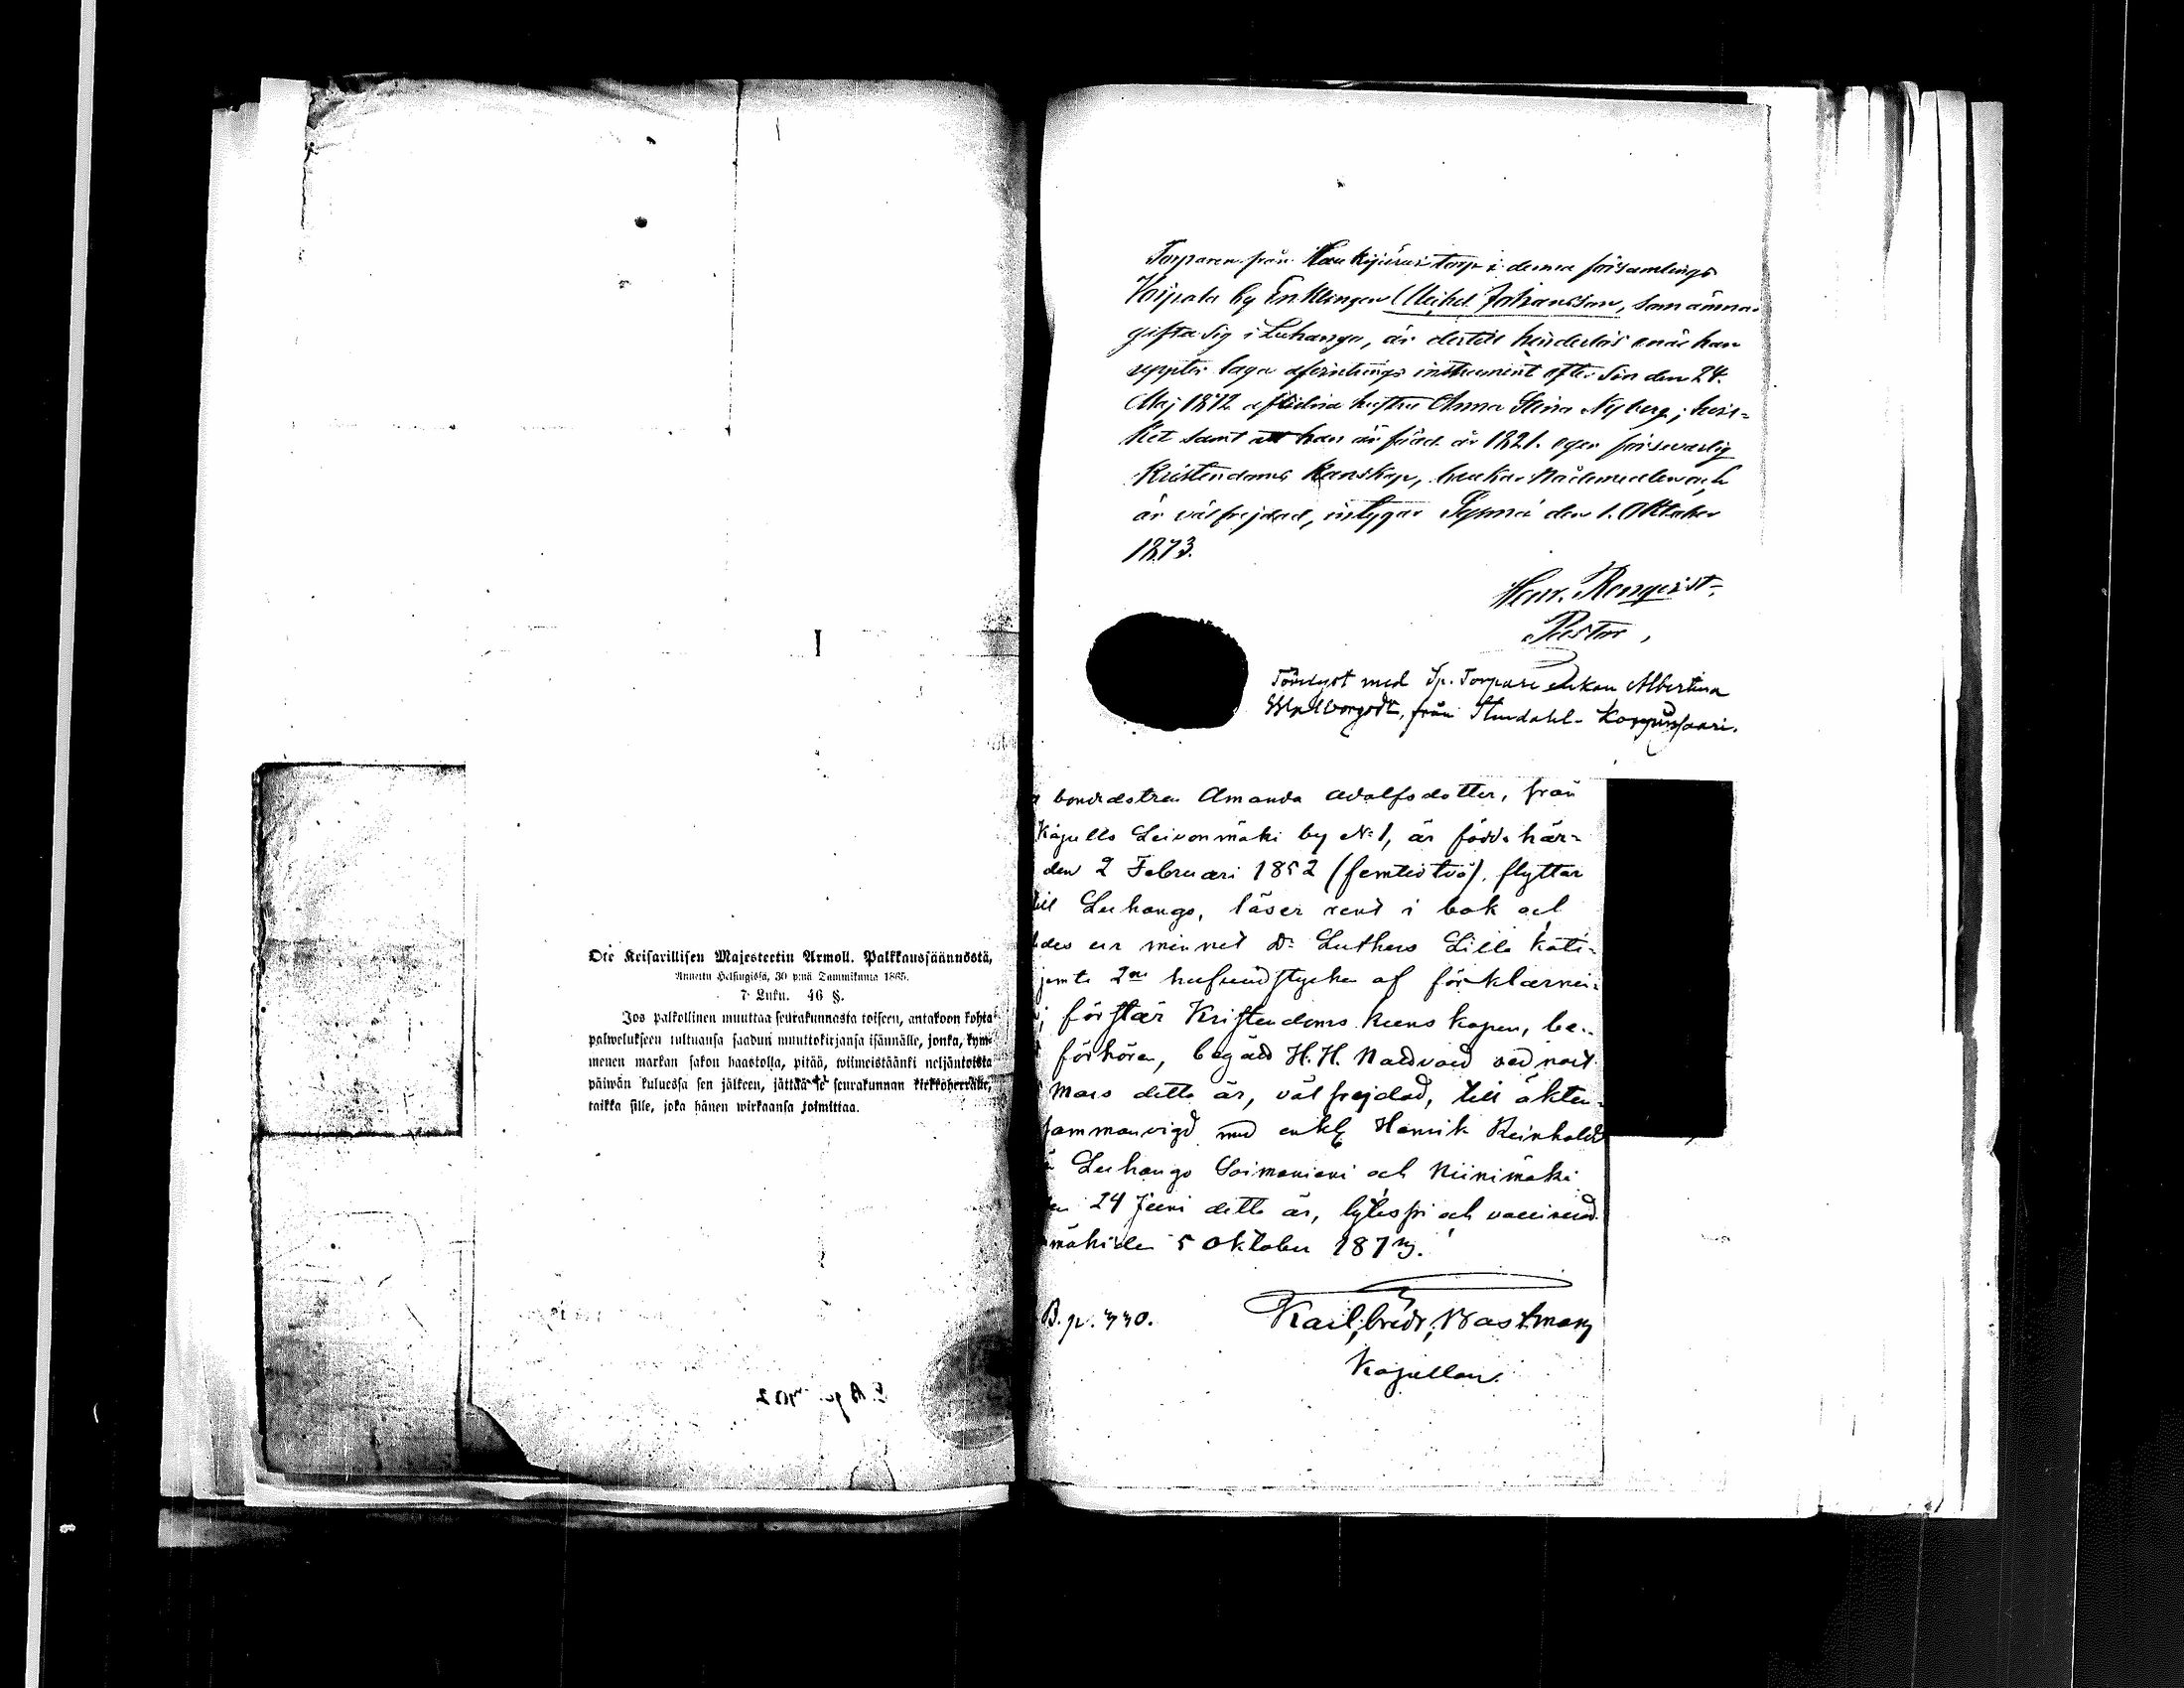 Ote Keisarillisen Majesteetin Armoll. Palkkaussäännöstä,
Annettu Helsingissä, 30 p:nä Tammikuuta 1865.
7 Luku. 46 §.
Jos palkollinen muuttaa seurakunnasta toiseen, antakoon kohta
palwelukseen tultuansa saadun muuttokirjansa isännälle, jonka, kym-
menen markan sakon haastolla, pitää, wiimeistäänki neljäntoista
päiwän kuluessa sen jälkeen, jättää se seurakunnan kirkkoherralle,
taikka sille, joka hänen wirkaansa toimittaa.
Torparen från torp i denna församlings
Voipala by Enklingen Michel Johansson, som ämnar
gifta sig i Luhango, är dertill hinderlös enär han
uppter laga afvittrings instrument efter sin den 24.
Maj 1872 aflidna hustru Anna Stina Nyberg;
samt att han är född år 1821. eger försvarlig
Kristendoms kunskap, brukar Nådemedlen och
är välfrejdad, intygar Sysmä den 1. Oktober
1873.
Henr. Renqvist.
Pastor,
med Albertina
från Stendahl
bondedotren Amanda Adolfsdotter, från
Leivonmäki by No 1, är född här-
den 2 Februari 1852 (femtiotvå), flyttar
till Luhango, läser rent i bok och
ur minnet Dr Luthers Lilla Kate-
jemte 2ne hufvudstycken af förklarnin-
förstår Kristendoms kunskapen, be-
förhören, begått H. H. Nattvard
Mars detta år, välfrejdad, till äkten-
sammanvigd med enkl Henrik Reinholds
Luhango och Niinimäki
24 Juni detta år, lytesfri och vaccinerad.
mäki den 5 Oktober 1873.
B. p. 330.
Karl Fredr. Wastman
Kapellan.